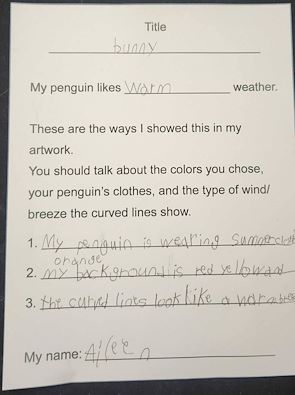 Title
bunny
My penguin likes warm weather.
These are the ways I showed this in my
artwork.
You should talk about the colors you chose,
your penguin's clothes, and the type of wind/
breeze the curved lines show.
1. My penguin is wearing summer
orange
2. my background is red yellow and
3. the curved lines look like a warm
My name: Aileen